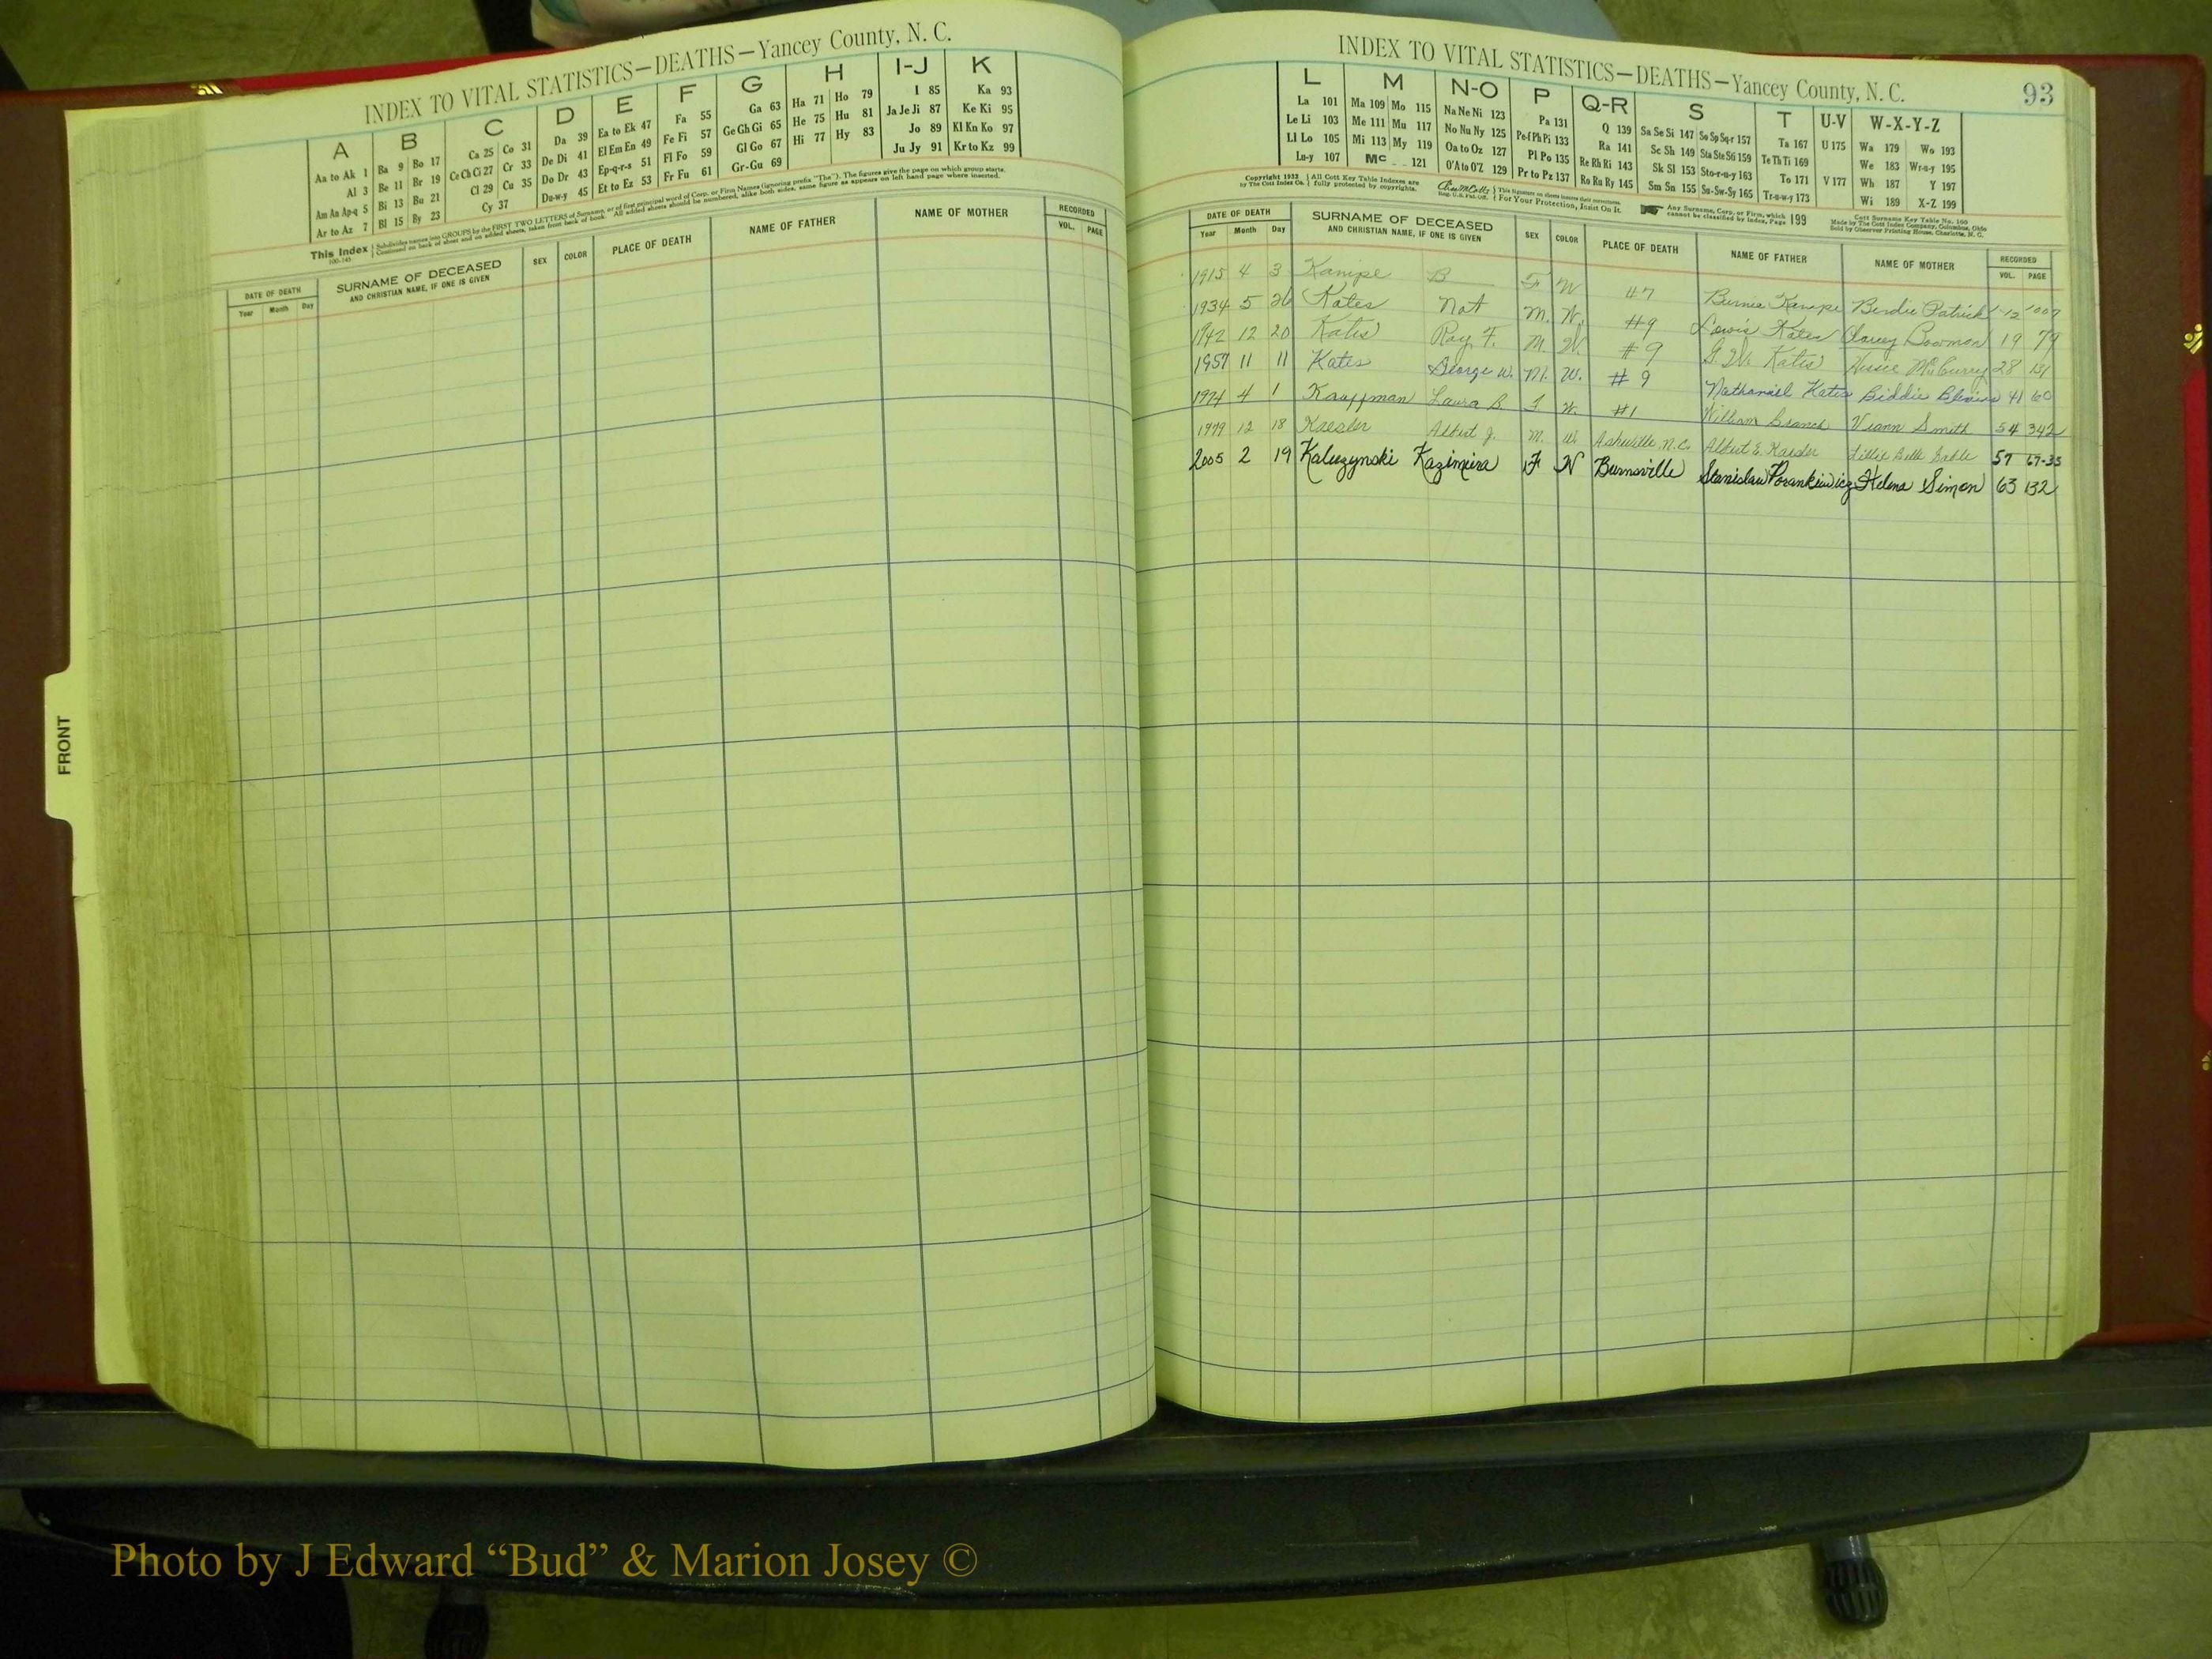 INDEX TO VITAL STATISTICS—DEATHS—Yancey County, N. C.
A B C D E F G H I-J K
Aa to Ak 1 Ba 9 Bo 17 Ca 25 Co 31 Da 39 Ea to Ek 47 Fa 55 Ga 63 Ha 71 Ho 79 I 85 Ka 93
Al 3 Be 11 Br 19 Ce Ch Ci 27 Cr 33 De Di 41 El Em En 49 Fe Fi 57 Ge Gh Gi 65 He 75 Hu 81 Ja Je Ji 87 Ke Ki 95
Am An Ap-q 5 Bi 13 Bu 21 Cl 29 Cu 35 Do Dr 43 Ep-q-r-s 51 Fl Fo 59 Gl Go 67 Hi 77 Hy 83 Jo 89 Kl Kn Ko 97
Ar to Az 7 Bl 15 By 23 Cy 37 Du-w-y 45 Et to Ez 53 Fr Fu 61 Gr-Gu 69 Ju Jy 91 Kr to Kz 99
This Index Subdivides names into GROUPS by the FIRST TWO LETTERS of Surname, or of first principal word of Corp. or Firm Names (ignoring prefix "The"). The figures give the page on which group starts.
Continued on back of sheet and on added sheets, taken from back of book. All added sheets should be numbered, alike both sides, same figure as appears on left hand page where inserted.
DATE OF DEATH SURNAME OF DECEASED SEX COLOR PLACE OF DEATH NAME OF FATHER NAME OF MOTHER RECORDED
Year Month Day AND CHRISTIAN NAME, IF ONE IS GIVEN VOL. PAGE
INDEX TO VITAL STATISTICS—DEATHS—Yancey County, N. C. 93
L M N-O P Q-R S T U-V W-X-Y-Z
La 101 Ma 109 Mo 115 Na Ne Ni 123 Pa 131 Q 139 Sa Se Si 147 So Sp Sq-r 157 Ta 167 U 175 Wa 179 Wo 193
Le Li 103 Me 111 Mu 117 No Nu Ny 125 Pe-f Ph Pi 133 Ra 141 Sc Sh 149 Sta Ste Sti 159 Te Th Ti 169 We 183 Wr-u-y 195
Ll Lo 105 Mi 113 My 119 Oa to Oz 127 Pl Po 135 Re Rh Ri 143 Sk Sl 153 Sto-r-u-y 163 To 171 V 177 Wh 187 Y 197
Lu-y 107 Mc 121 O'A to O'Z 129 Pr to Pz 137 Ro Ru Ry 145 Sm Sn 155 Su-Sw-Sy 165 Tr-u-w-y 173 Wi 189 X-Z 199
Copyright 1932 All Cott Key Table Indexes are
by The Cott Index Co. fully protected by copyrights.
For Your Protection, Insist On It.
Any Surname, Corp. or Firm, which
cannot be classified by index, Page 199
Cott Surname Key Table No. 100
Made by The Cott Index Company, Columbus, Ohio
Sold by Observer Printing House, Charlotte, N. C.
DATE OF DEATH SURNAME OF DECEASED SEX COLOR PLACE OF DEATH NAME OF FATHER NAME OF MOTHER RECORDED
Year Month Day AND CHRISTIAN NAME, IF ONE IS GIVEN VOL. PAGE
1915 4 3 Kanipe B F W #7 Burnie Kanipe Birdie Patrick
1934 5 26 Kates Nat M. W. #9 Lewis Kates Bowman 19 79
1942 12 20 Kates Ray F. M. W. #9 G. W. Kates McCurry 28 131
1957 11 11 Kates George W. M. W. #9 Nathaniel Kates Biddie Blevins 41 60
1974 4 1 Kauffman Laura B. F W. #1 William Branch Viann Smith 54 342
1979 12 18 Kaesler Albert J. M. W. Asheville N.C. Albert E. Kaesler Lillie Belle Gable 59 67-35
2005 2 19 Kaluzynski Kazimiera F W Burnsville Stanislaw Porankiewicz Helena Simon 63 132
FRONT
Photo by J Edward “Bud” & Marion Josey ©